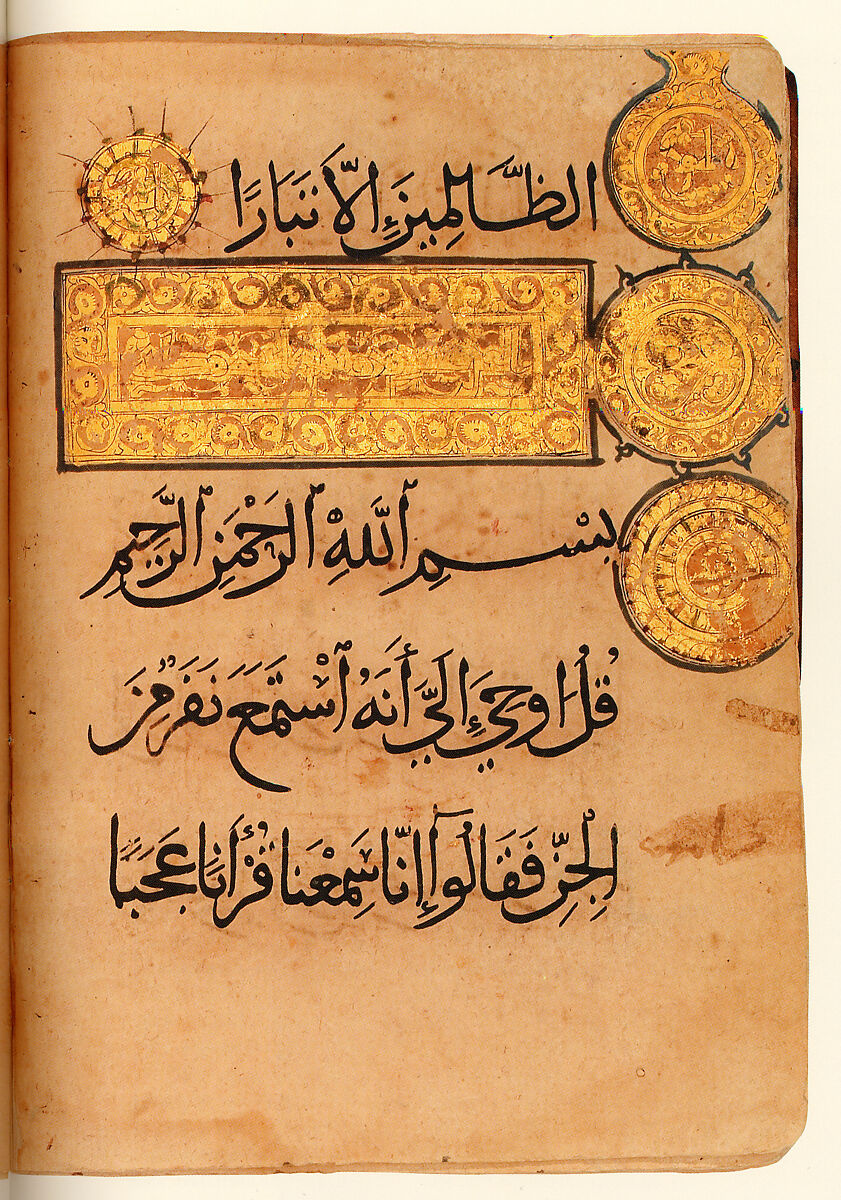 الظَّالِمِينَ إِلَّا تَبَارًا
بِسْمِ ٱللَّهِ ٱلرَّحْمَنِ ٱلرَّحِيمِ
قُلْ أُوحِيَ إِلَيَّ أَنَّهُ ٱسْتَمَعَ نَفَرٌ مِنَ
الْجِنِّ فَقَالُوٓا إِنَّا سَمِعْنَا قُرْأَنًا عَجَبًا